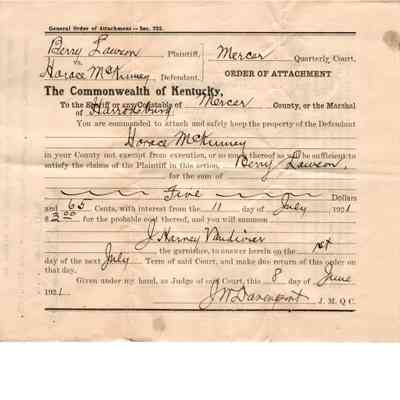 General Order of Attachment—Sec. 222.
Berry Lawson Plaintiff,
vs.
Horace McKinney, Defendant.
Mercer Quarterly Court.
ORDER OF ATTACHMENT
The Commonwealth of Kentucky,
To the Sheriff or any Constable of Mercer County, or the Marshal
of Harrodsburg
You are commanded to attach and safely keep the property of the Defendant
Horace McKinney
in your County not exempt from execution, or so much thereof as will be sufficient to
satisfy the claims of the Plaintiff in this action, Berry Lawson,
for the sum of
Five Dollars
and 65 Cents, with interest from the 11 day of July 1921
$ 3.00 for the probable cost thereof, and you will summon
J. Harney
the garnishee, to answer herein on the 1st
day of the next July Term of said Court, and make due return of this order on
that day.
Given under my hand, as Judge of said Court, this 8 day of June
1921. J W Davenport J. M. Q. C.